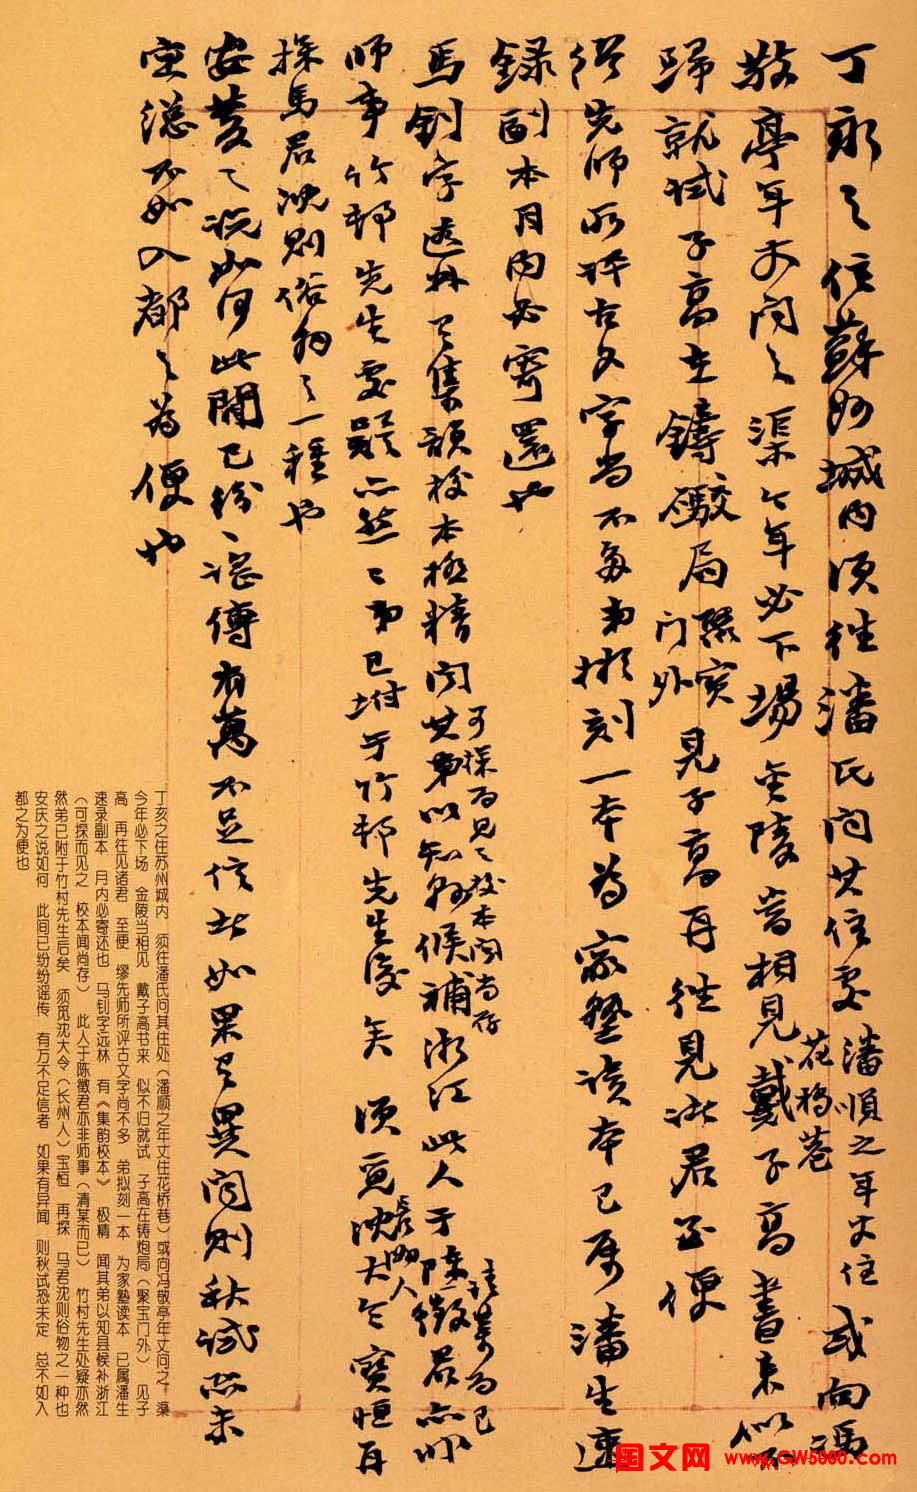 丁泳之住蘇州城内須往潘氏問其住處潘順之年丈住花橋巷或向馮
敬亭年丈問之渠今年必下場金陵當相見戴子高書來似不
歸就試子高在鑄礮局聚寳门外見子高再往見諸君至便
繆先師所評古文字尚不多弟擬刻一本為家塾讀本已屬潘生速
録副本月内必寄還也
馬釗字遠林有集韻校本極精聞其弟以知縣候補浙江此人于陳徵君亦非
可探而見之校本聞尚存
請業而已
師事竹邨先生處疑亦然〻弟已坿于竹邨先生後矣須覓沈大令寳恒再
長州人
探馬君沈則俗物之一種也
安慶之説如何此間已紛〻谣傳有萬不足信者如果有異聞則秋試恐未
定總不如入都之為便也
丁亥之住苏州城内 须往潘氏问其住处（潘顺之年丈住花桥巷）或向冯敬亭年丈问之 渠
今年必下场 金陵当相见 戴子高书来 似不归就试 子高在铸炮局（聚宝门外） 见子
高 再往见诸君 至便 缪先师所评古文字尚不多 弟拟刻一本 为家塾读本 已属潘生
速录副本 月内必寄还也 马钊字远林 有《集韵校本》 极精 闻其弟以知县候补浙江
（可探而见之 校本闻尚存） 此人于陈徵君亦非师事（清某而已） 竹村先生处疑亦然
然弟已附于竹村先生后矣 须觅沈大令（长州人）宝恒 再探 马君沈则俗物之一种也
安庆之说如何 此间已纷纷谣传 有万不足信者 如果有异闻 则秋试恐未定 总不如入
都之为便也
国文网 www.GW5000.com